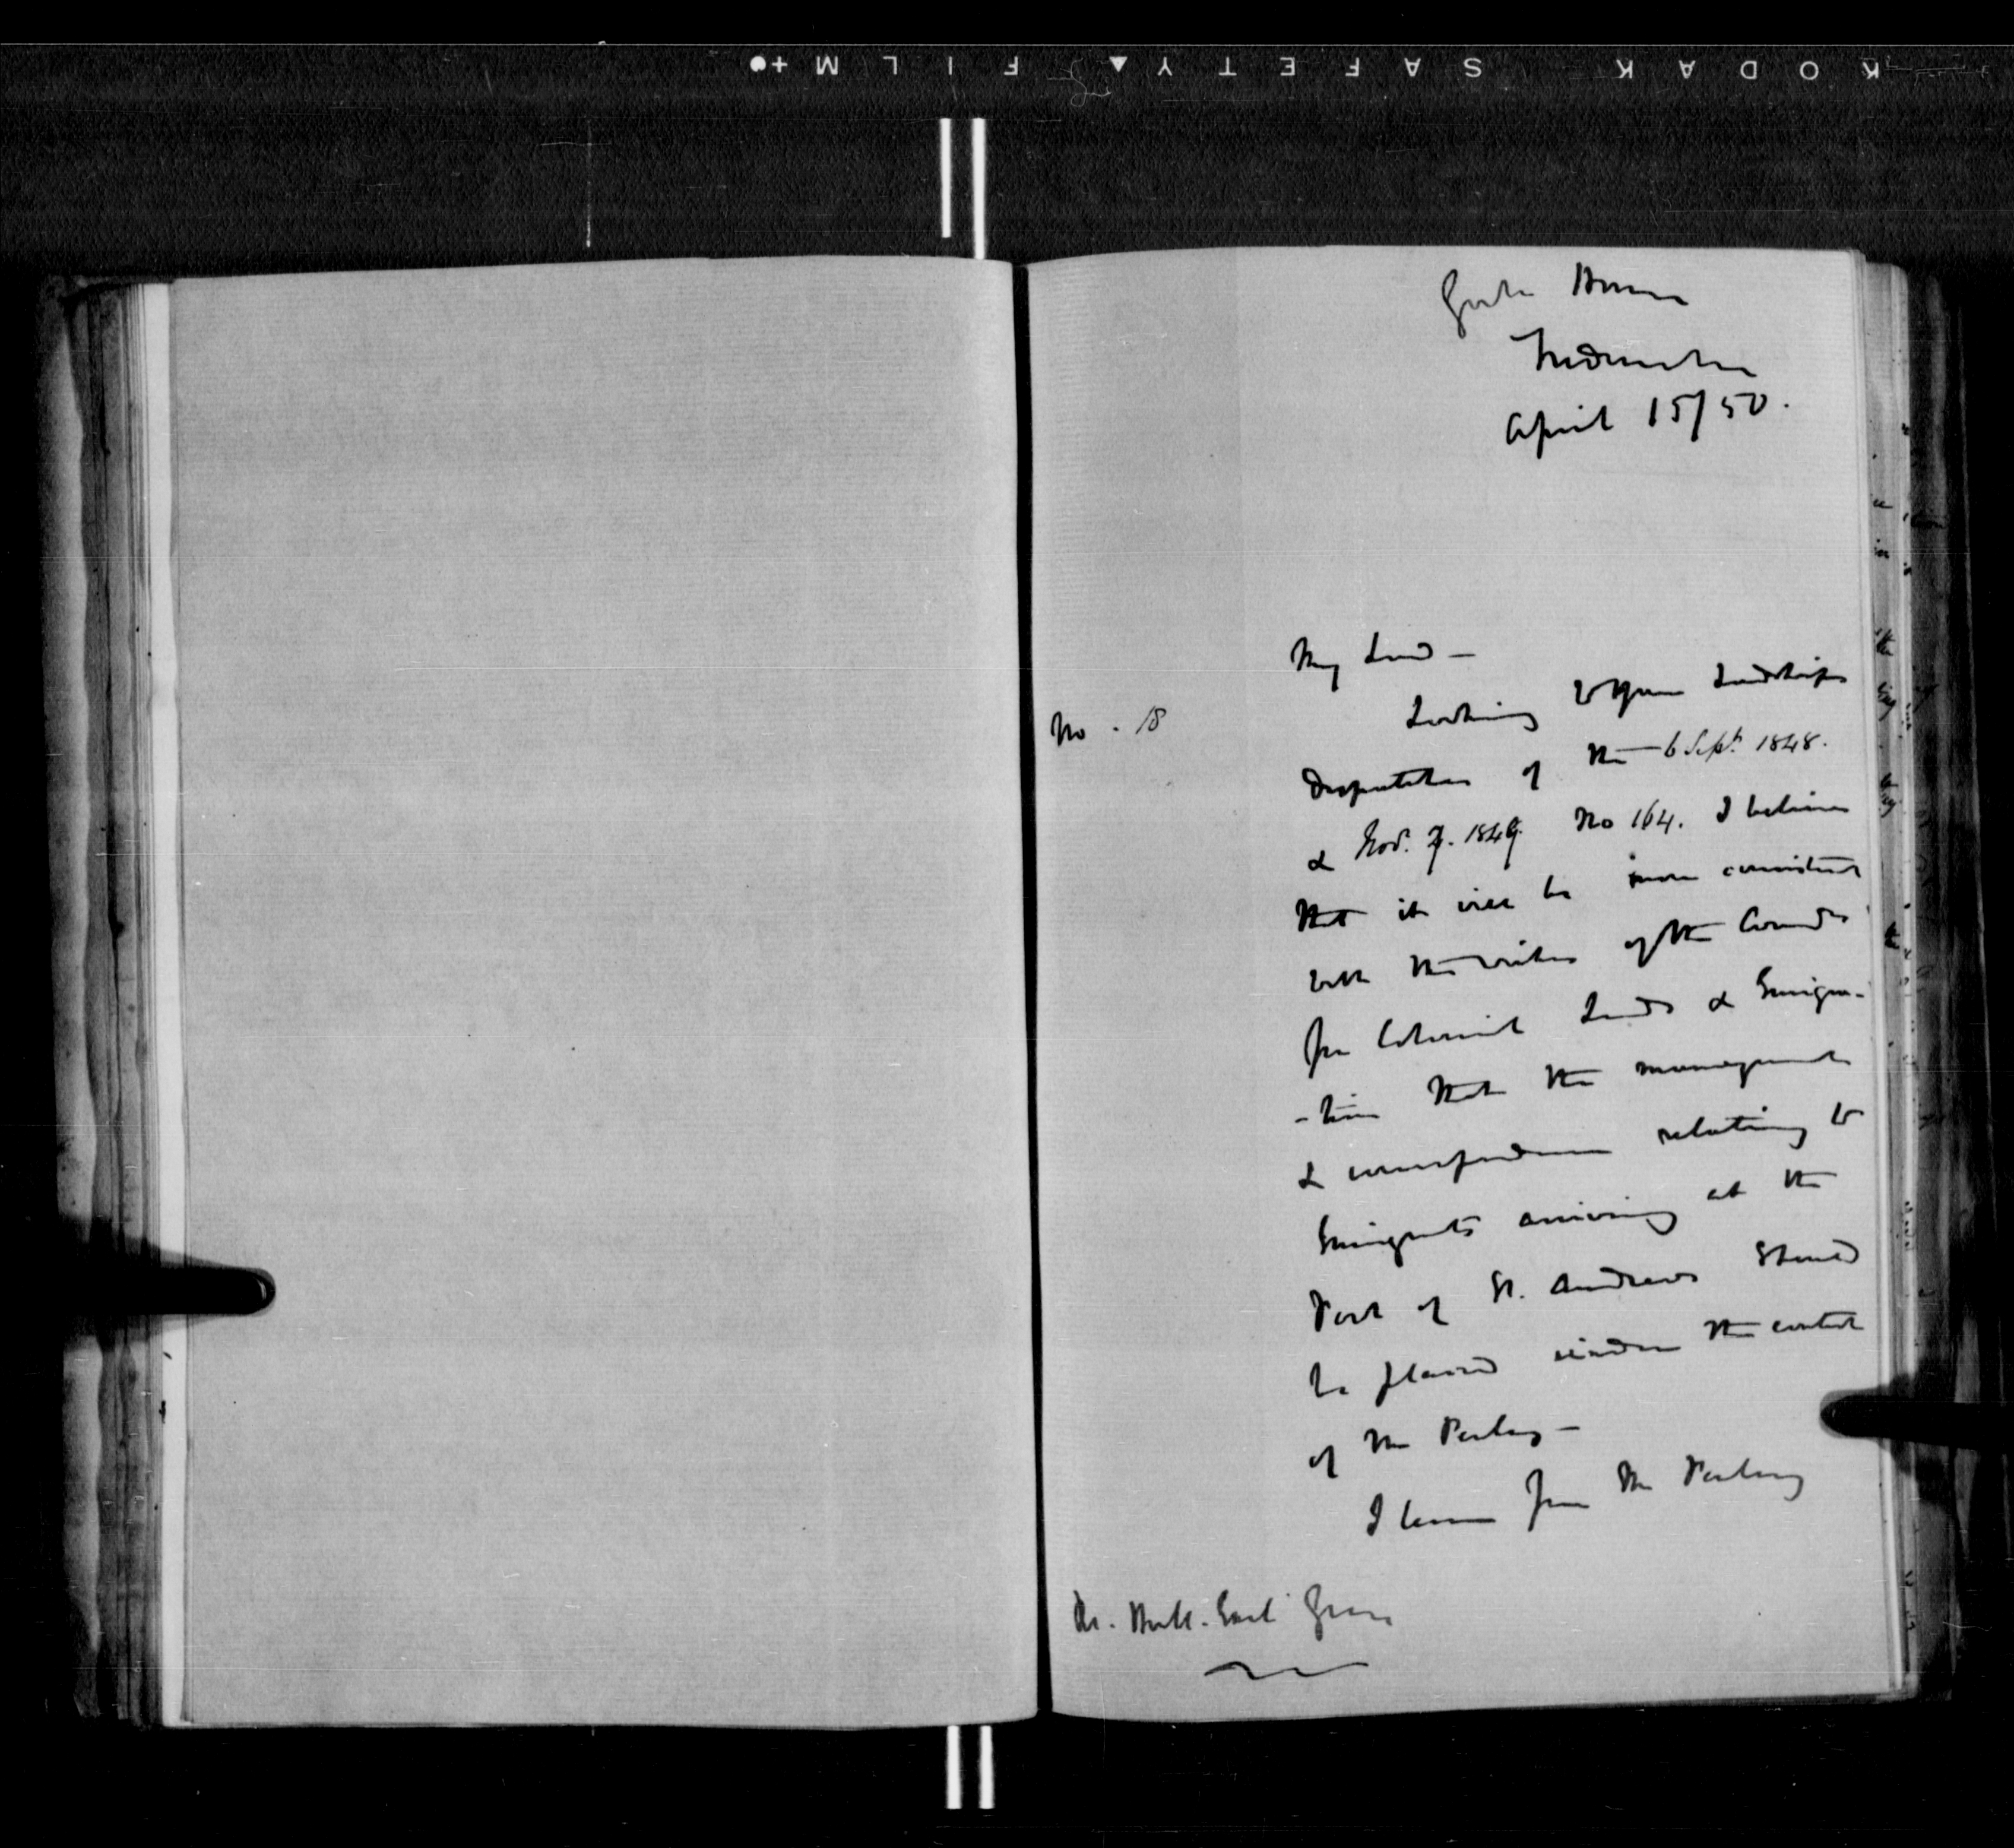 KODAK SAFETY▲ FILM
Govt House
Fredericton
April 15/50.
My Lord —
No. 18
Looking to Your Lordships
Despatches of the 6 Sept. 1848.
& Nov. 1849 No 164. I believe
that it will be more consistent
with the wishes of the Comrs
for Colonial Lands & Emigra-
-tion that the management
& correspondence relating to
Emigrants arriving at the
Port of St. Andrews should
be placed under the control
of Mr Perley —
I learn from Mr Perley
Rt. Honble. Earl Grey